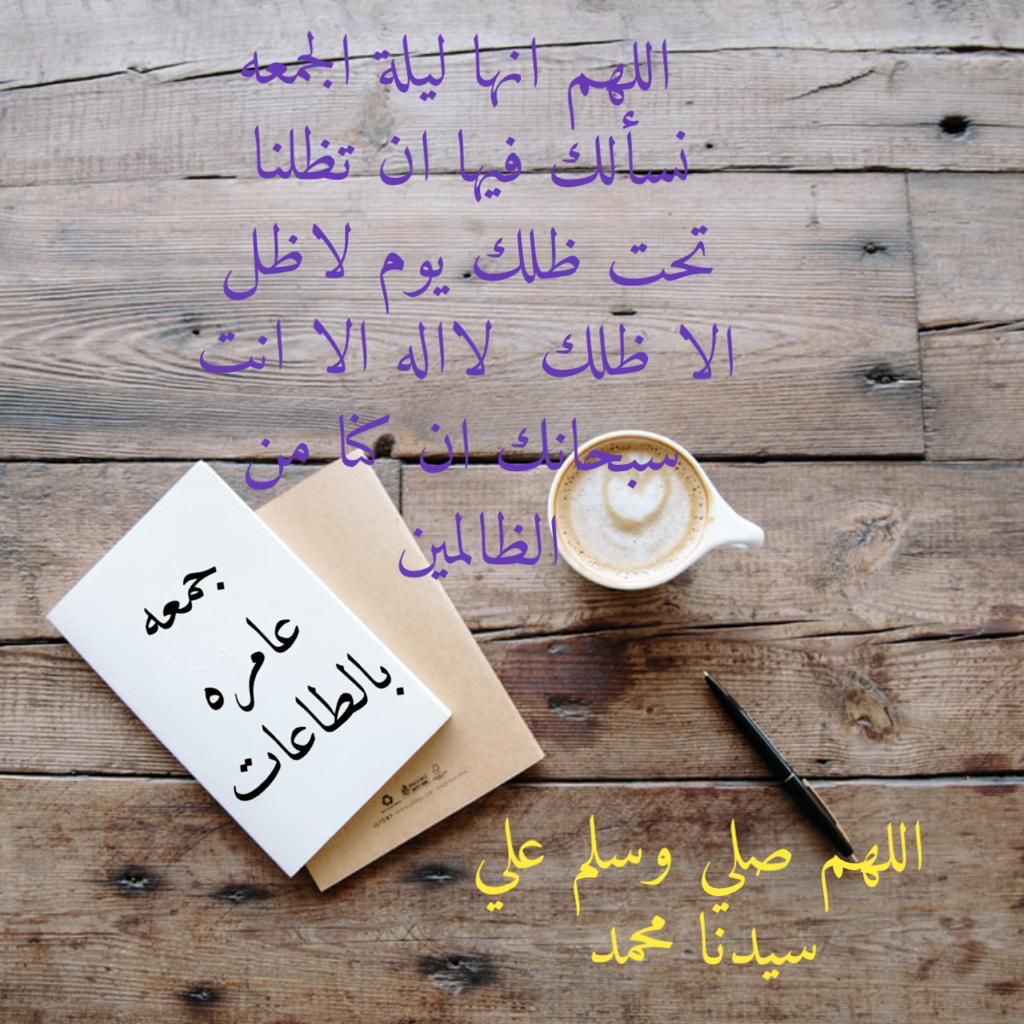 اللهم انها ليلة الجمعه
نسألك فيها ان تظلنا
تحت ظلك يوم لاظل
الا ظلك لااله الا انت
سبحانك ان كنا من
الظالمين
جمعه
عامره
بالطاعات
اللهم صلي وسلم علي
سيدنا محمد